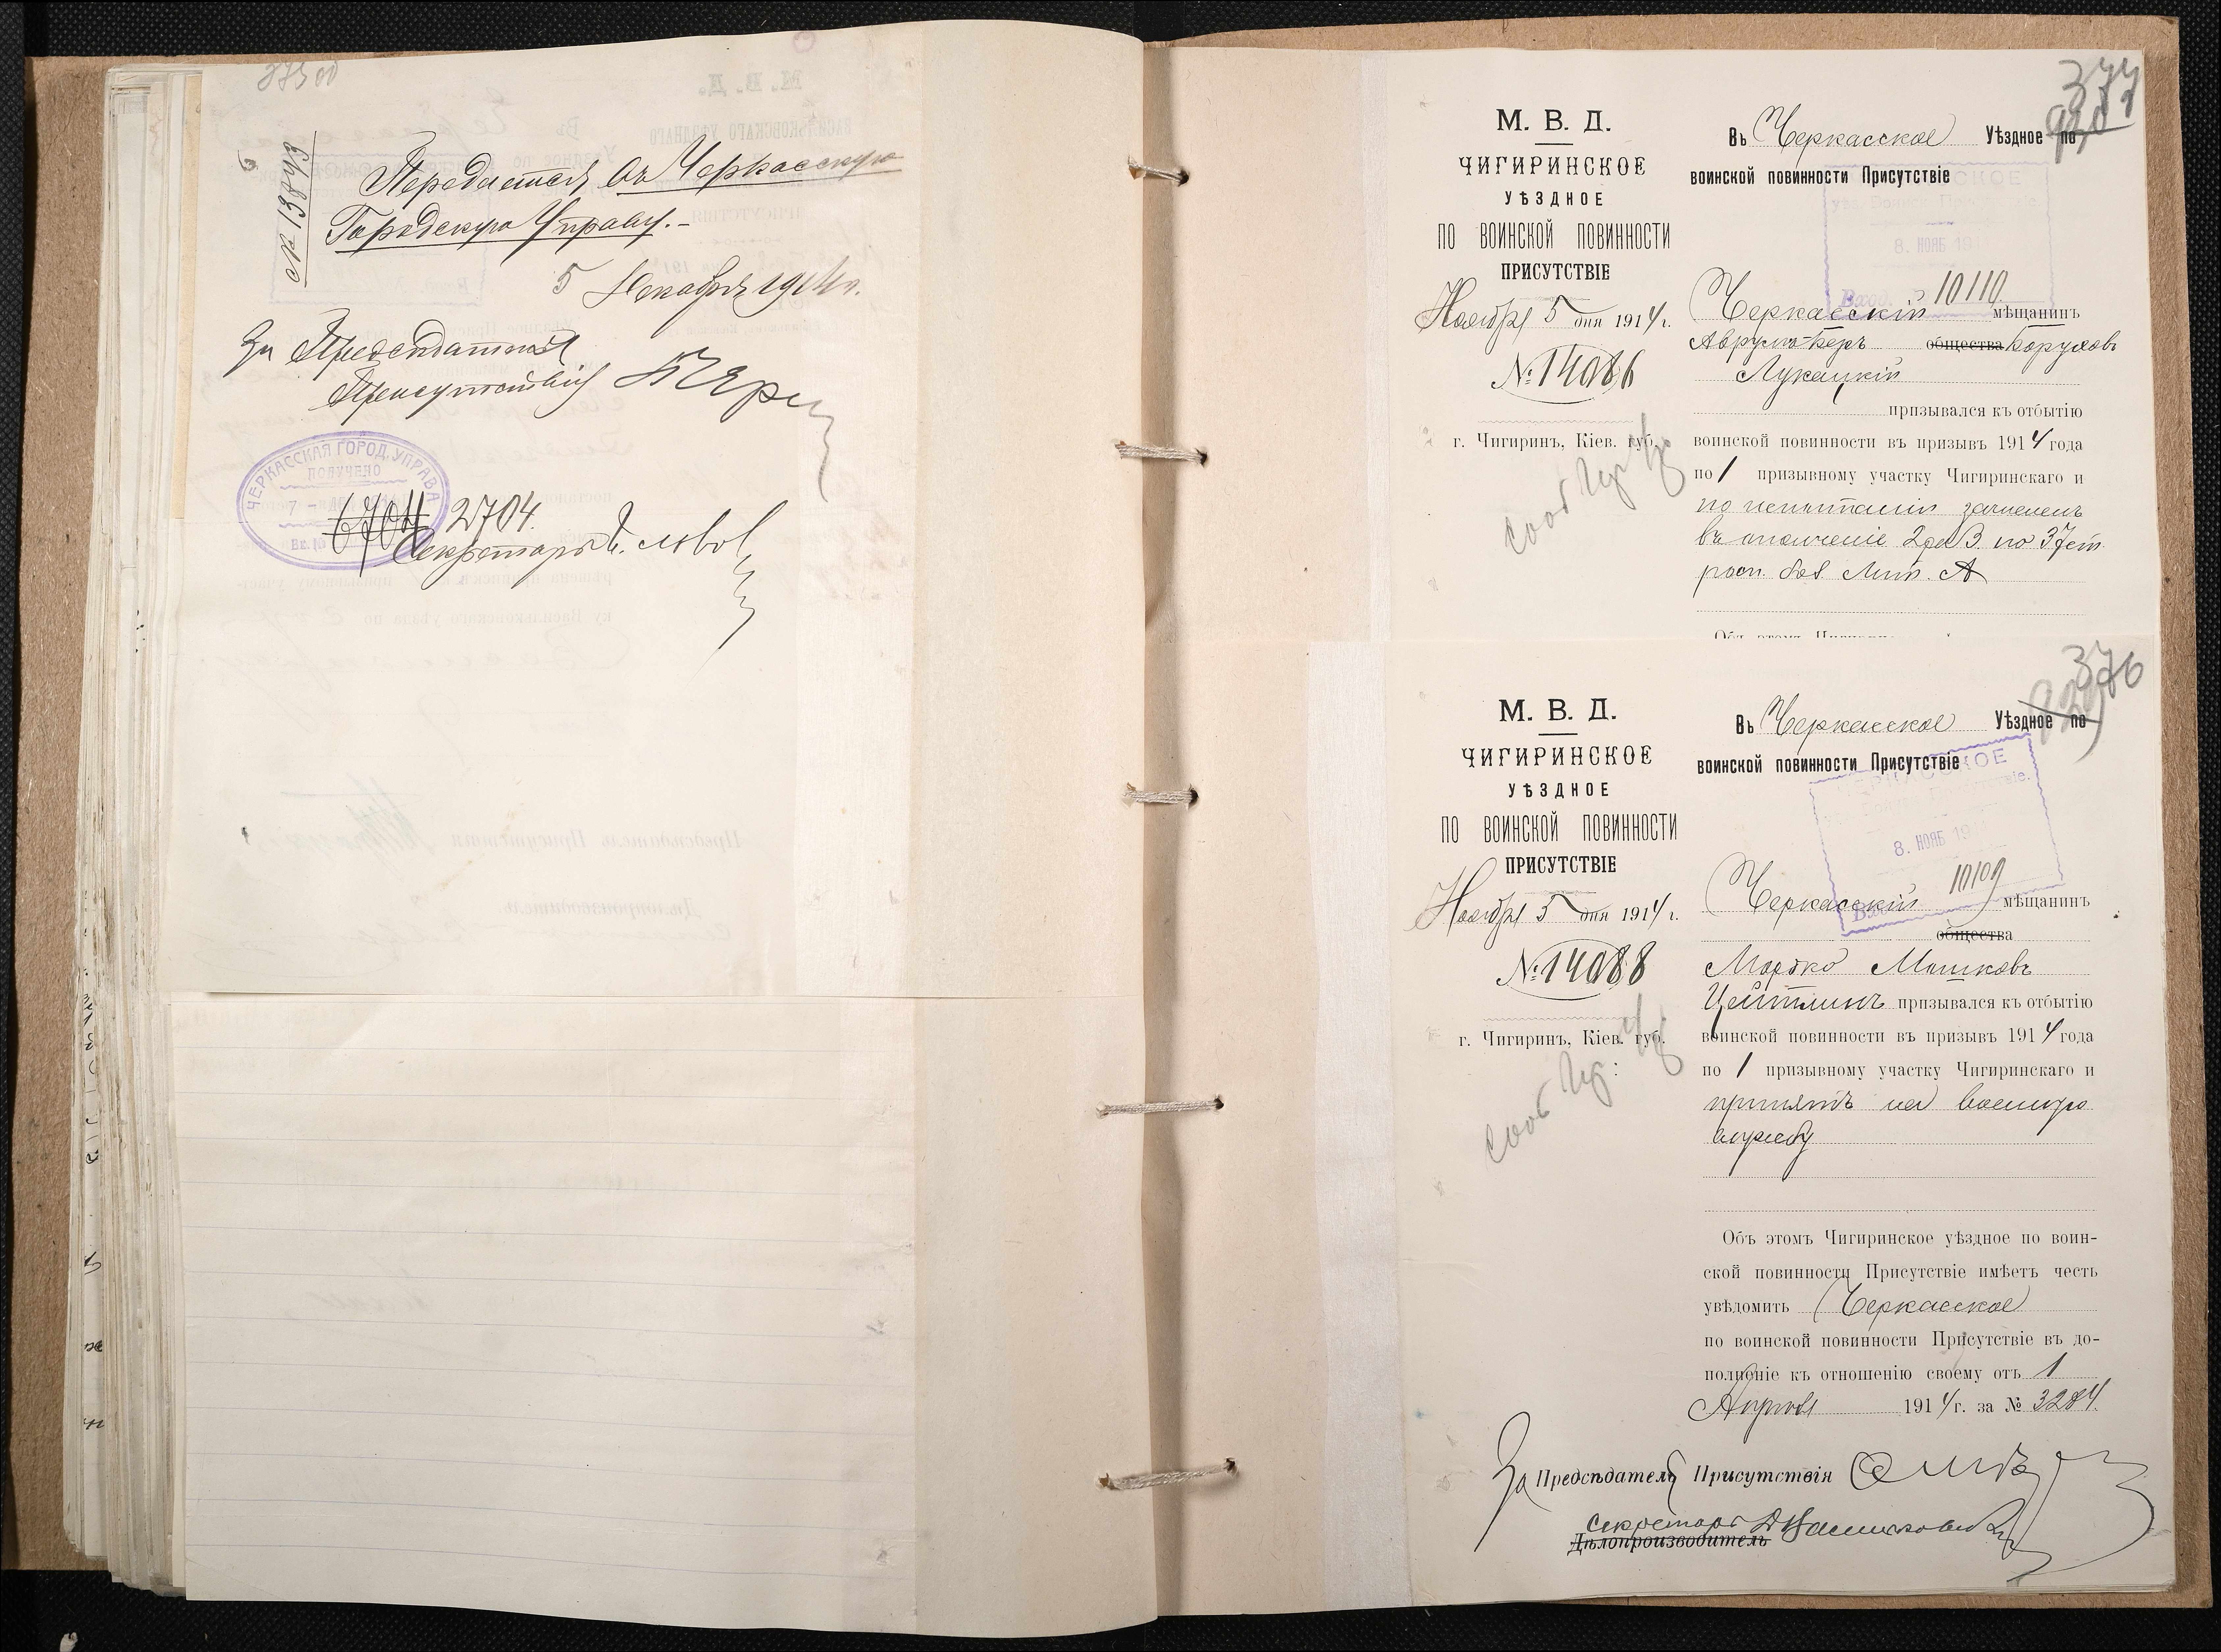 № 13843
Передается въ Черкасскую
Городскую Управу.-
5 Декабря 1914 г.
За Председателя
Присутствія
ЧЕРКАССКАЯ ГОРОД. УПРАВА
ПОЛУЧЕНО
6704 2704.
Секретарь
377
М. В. Д.
ЧИГИРИНСКОЕ
УѢЗДНОЕ
ПО ВОИНСКОЙ ПОВИННОСТИ
ПРИСУТСТВІЕ
Ноября 5 дня 1914 г.
№ 14086
г. Чигиринъ, Кіев. губ.
Въ Черкасское Уѣздное по
воинской повинности Присутствіе
8. НОЯБ 191
Вход. 10110
Черкасскій мѣщанинъ
Аврумъ-Беръ общества Боруховъ
Лукацкій
призывался къ отбытію
воинской повинности въ призывъ 1914 года
по 1 призывному участку Чигиринскаго и
по испытаніи зачисленъ
въ ополченіе 2 раз. по 37 ст.
росп. бол. Лит. А
376
М. В. Д.
ЧИГИРИНСКОЕ
УѢЗДНОЕ
ПО ВОИНСКОЙ ПОВИННОСТИ
ПРИСУТСТВІЕ
Ноября 5 дня 1914 г.
№ 14088
г. Чигиринъ, Кіев. губ.
Въ Черкасское Уѣздное по
воинской повинности Присутствіе
8. НОЯБ 191
10109
Черкасскій мѣщанинъ
общества
Мордко Мошковъ
Цейтлинъ призывался къ отбытію
воинской повинности въ призывъ 1914 года
по 1 призывному участку Чигиринскаго и
принятъ на военную
службу
Объ этомъ Чигиринское уѣздное по воин-
ской повинности Присутствіе имѣетъ честь
увѣдомить Черкасское
по воинской повинности Присутствіе въ до-
полненіе къ отношенію своему отъ 1
Апреля 1914 г. за № 3284.
За Предсѣдателя Присутствія
Секретарь
Дѣлопроизводитель